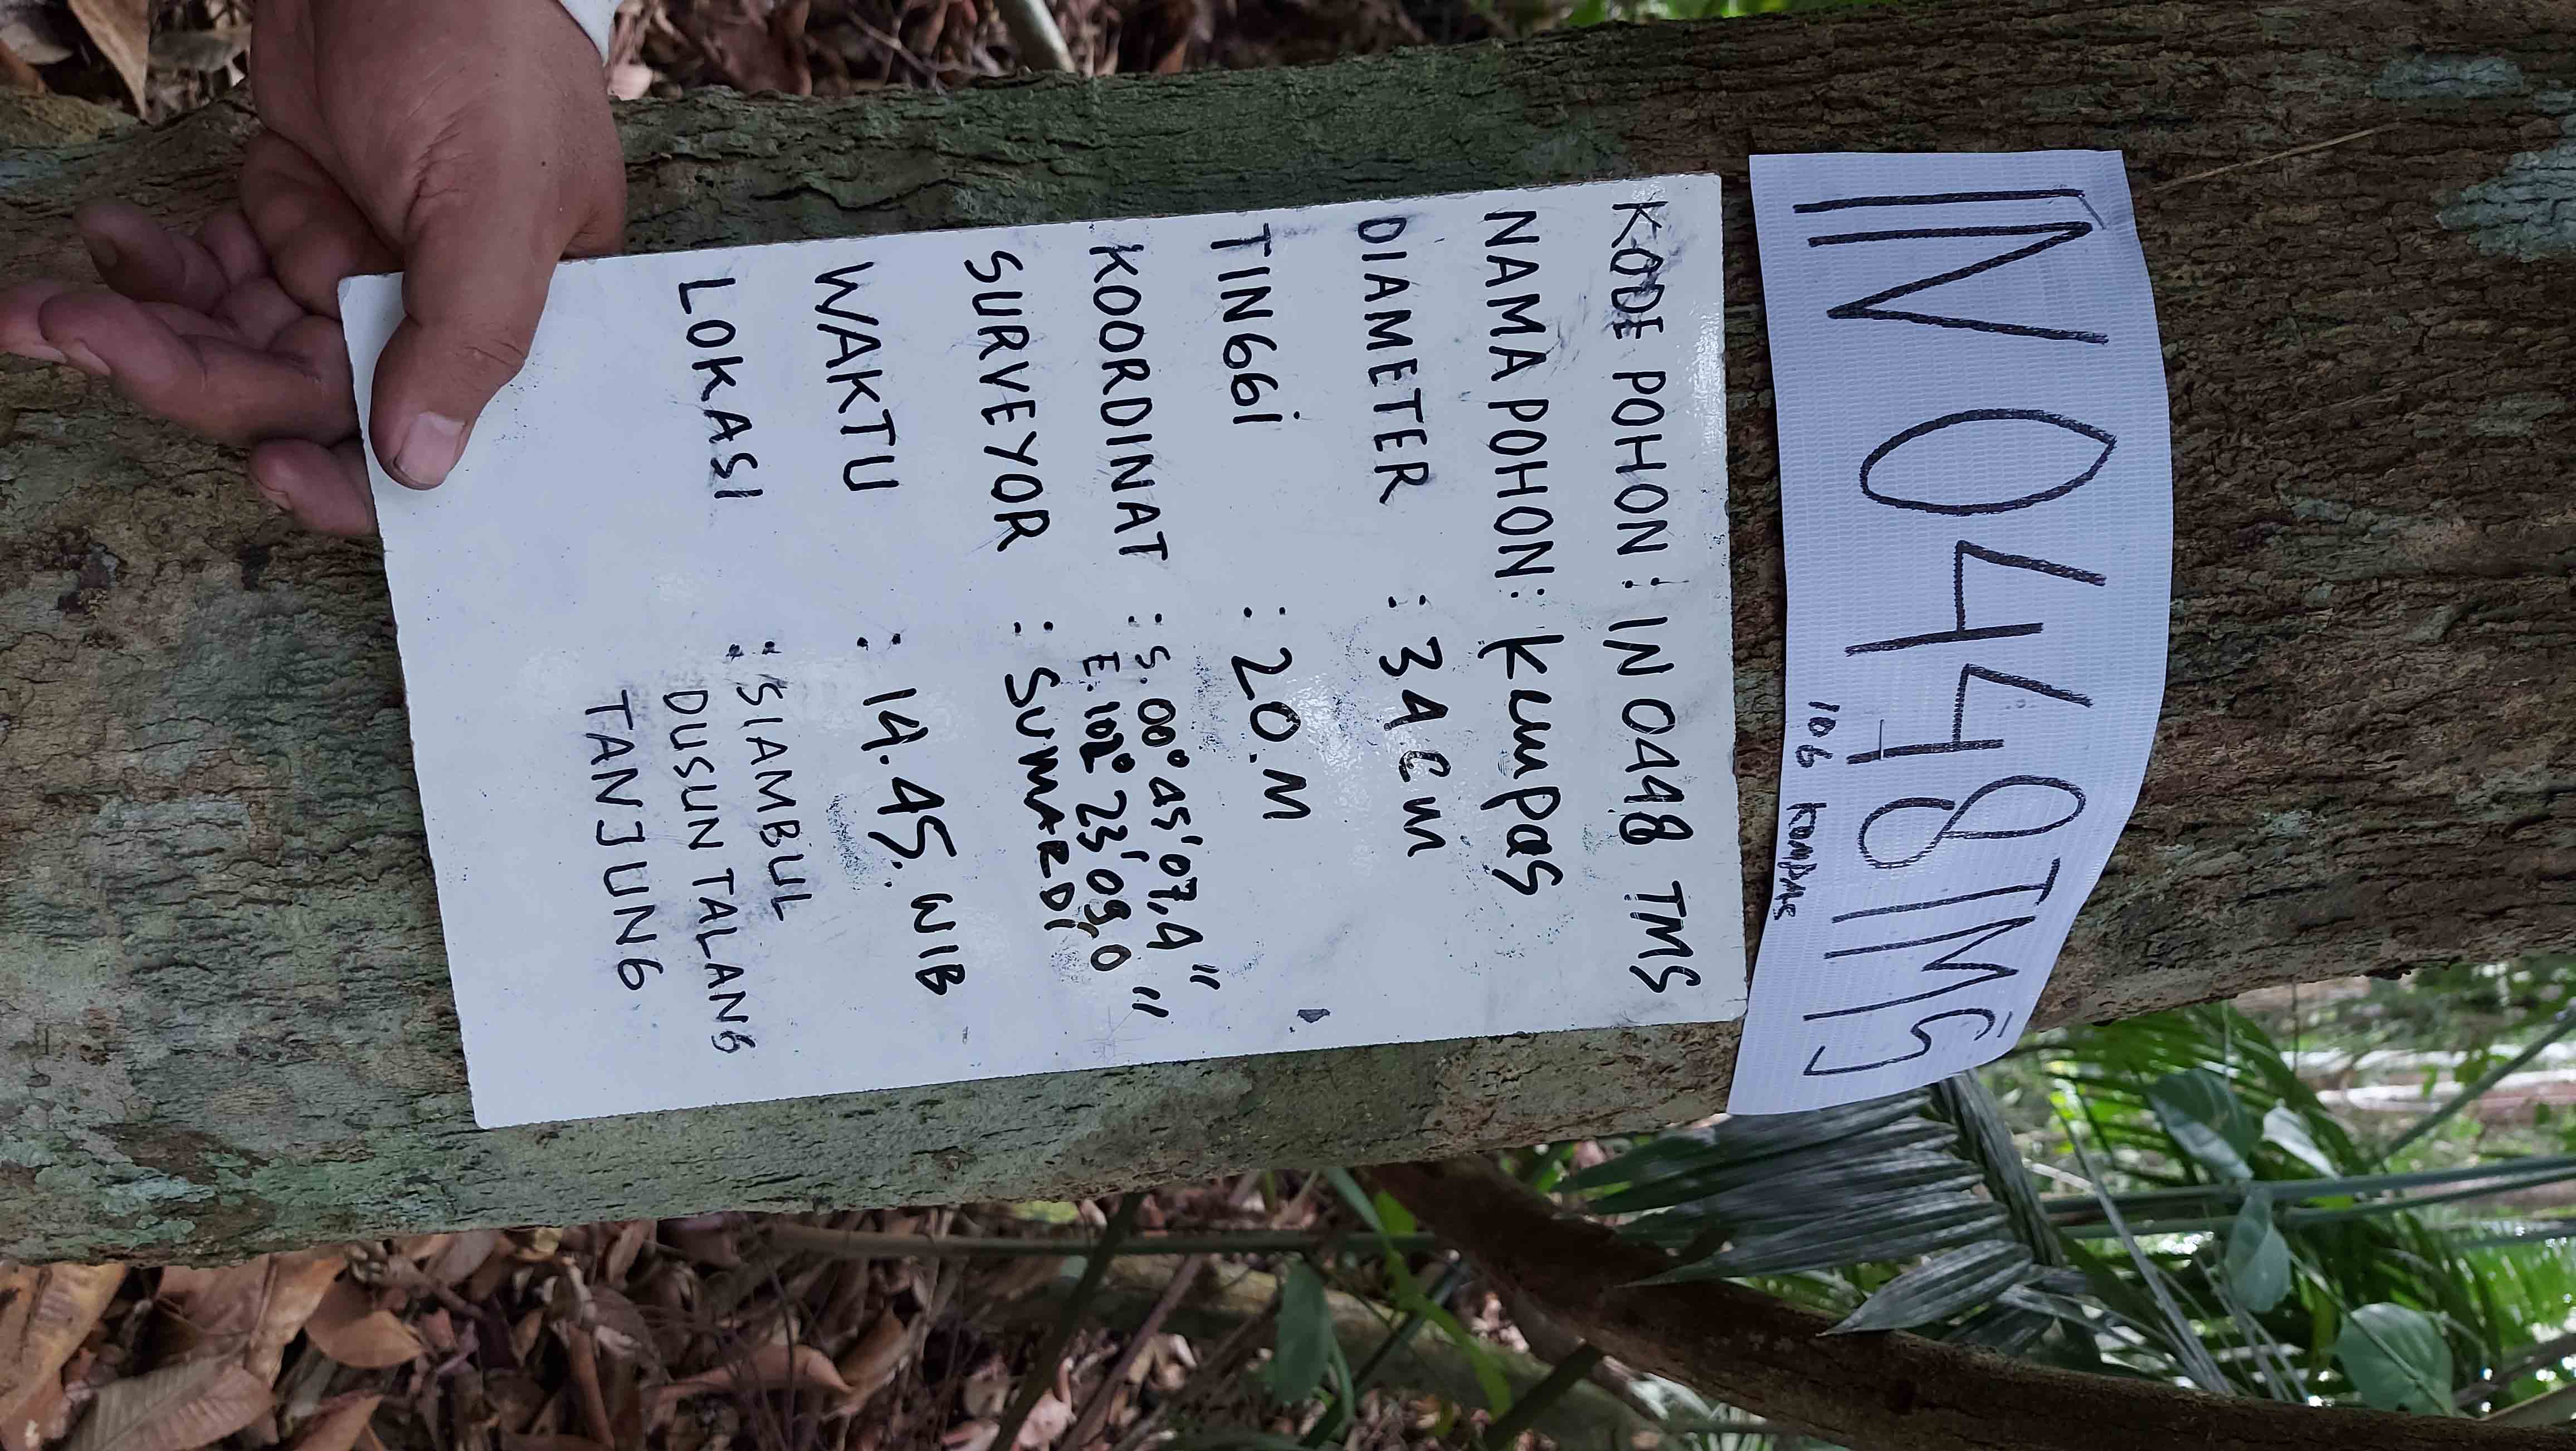 IN 0448 TMS
106 KOMPAS
KODE POHON : IN 0448 TMS
NAMA POHON : Kempas
DIAMETER : 34 cm
TINGGI : 20. M
KOORDINAT : S. 00° 45' 07,4"
E. 102° 23' 09,0"
SURVEYOR : SUMARDI
WAKTU : 14.45. WIB
LOKASI : SIAMBUL
DUSUN TALANG
TANJUNG